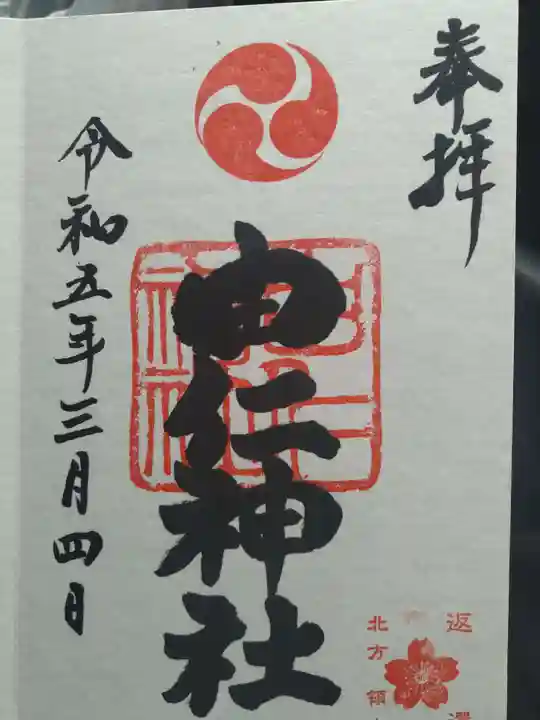 奉拝
由仁神社
令和五年三月四日
返還
北方領